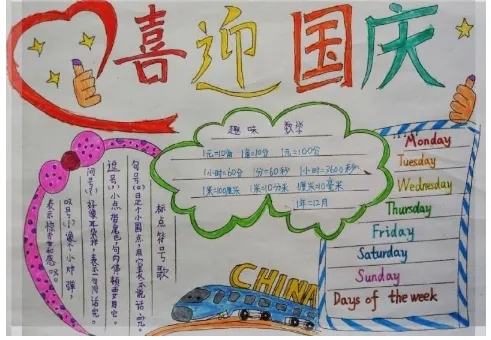 喜迎国庆
趣味 数学
1元=10角 1角=10分 1元=100分
1小时=60分 1分=60秒 1小时=3600秒
1米=100厘米 1米=10分米 1厘米=10毫米
1年=12月
标点符号歌
句号(。)是个小圆点,用它表示说话完。
逗号(,)小点带尾巴,句内停顿要用它。
问号(?)好像耳朵样,表示一句问话完。
叹号(!)像个小炸弹,
表示惊奇和感叹。
Monday
Tuesday
Wednesday
Thursday
Friday
Saturday
Sunday
Days of the week
CHINA